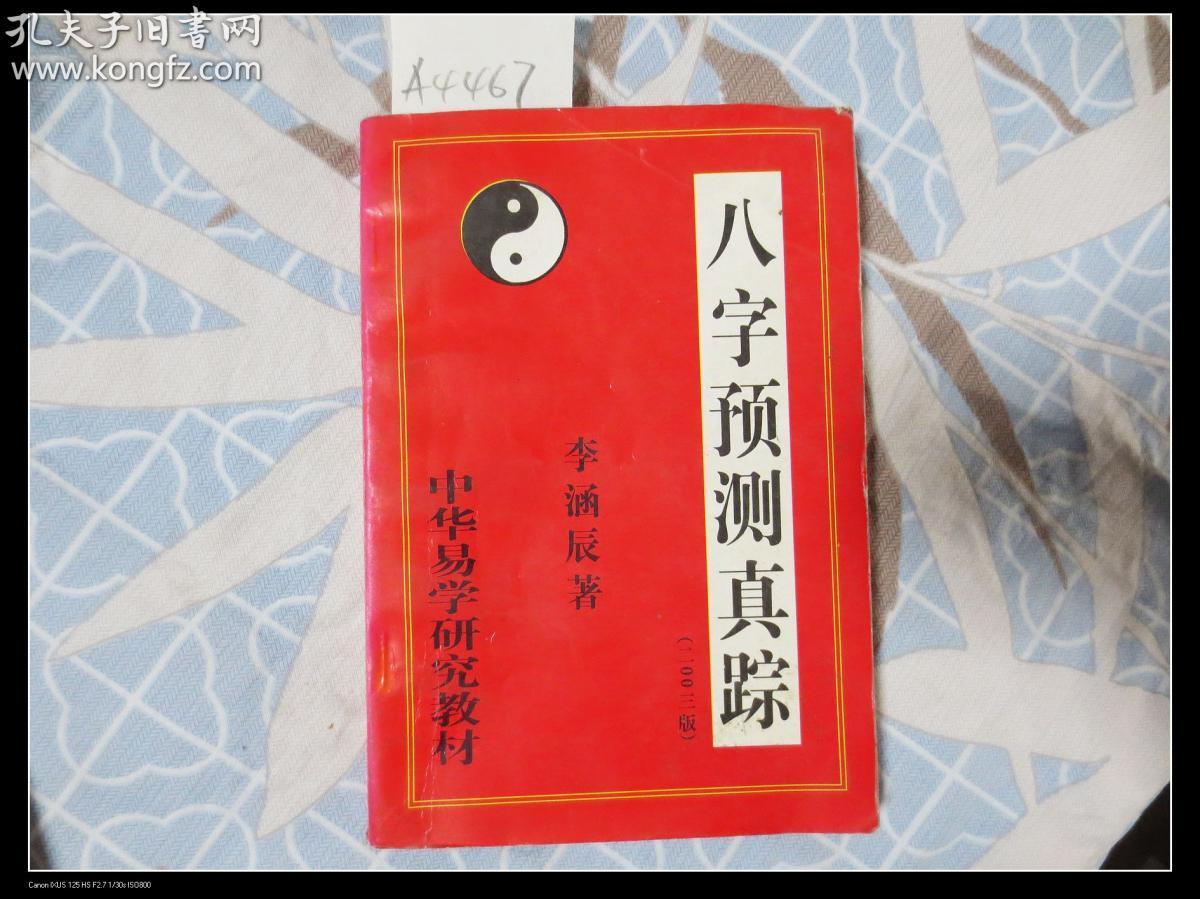 孔夫子旧書网
www.kongfz.com
A4467
八字预测真踪
(二00三版)
李涵辰著
中华易学研究教材
Canon IXUS 125 HS F2.7 1/30s ISO800